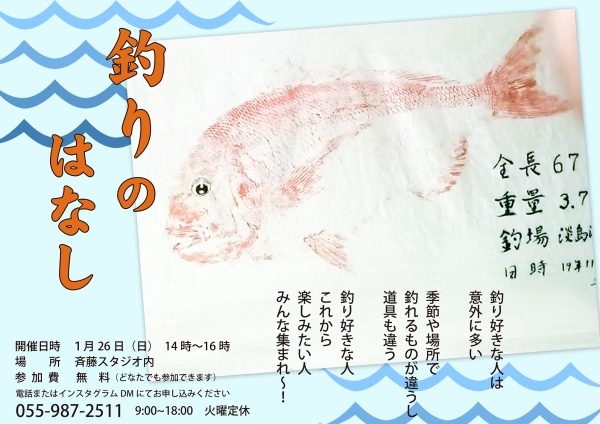 釣りの
はなし
全長 67
重量 3.7
釣場 淡島
日時 19年11
釣り好きな人は
意外に多い
季節や場所で
釣れるものが違うし
道具も違う
釣り好きな人
これから
楽しみたい人
みんな集まれ～！
開催日時　1月26日（日） 14時～16時
場　　所　斉藤スタジオ内
参 加 費　無　料（どなたでも参加できます）
電話またはインスタグラム DM にてお申し込みください
055-987-2511　9:00~18:00　火曜定休